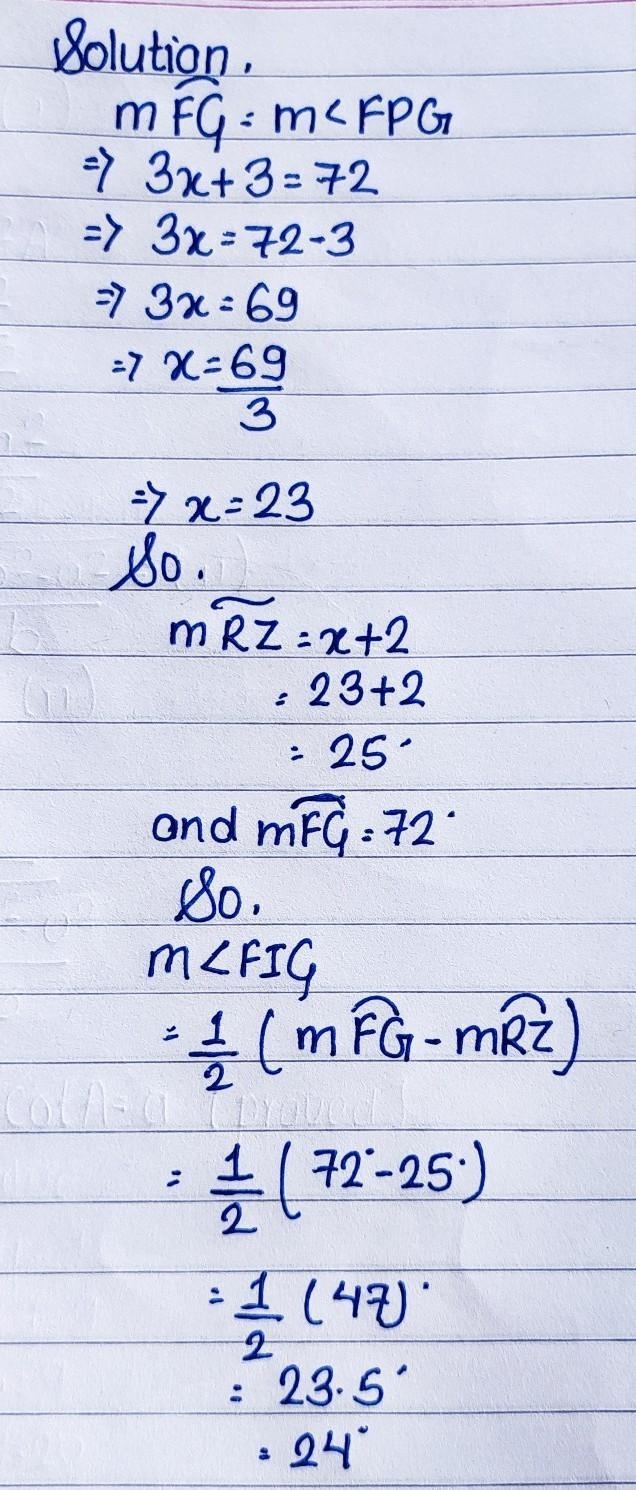 Solution.
m FG = m<FPG
=> 3x+3=72
=> 3x=72-3
=> 3x=69
=> x=69/3
=> x=23
So.
m RZ = x+2
= 23+2
= 25°
and mFG=72°
So,
m<FIG
= 1/2 (m FG - mRZ)
= 1/2 (72°-25°)
= 1/2 (47)°
= 23.5°
= 24°